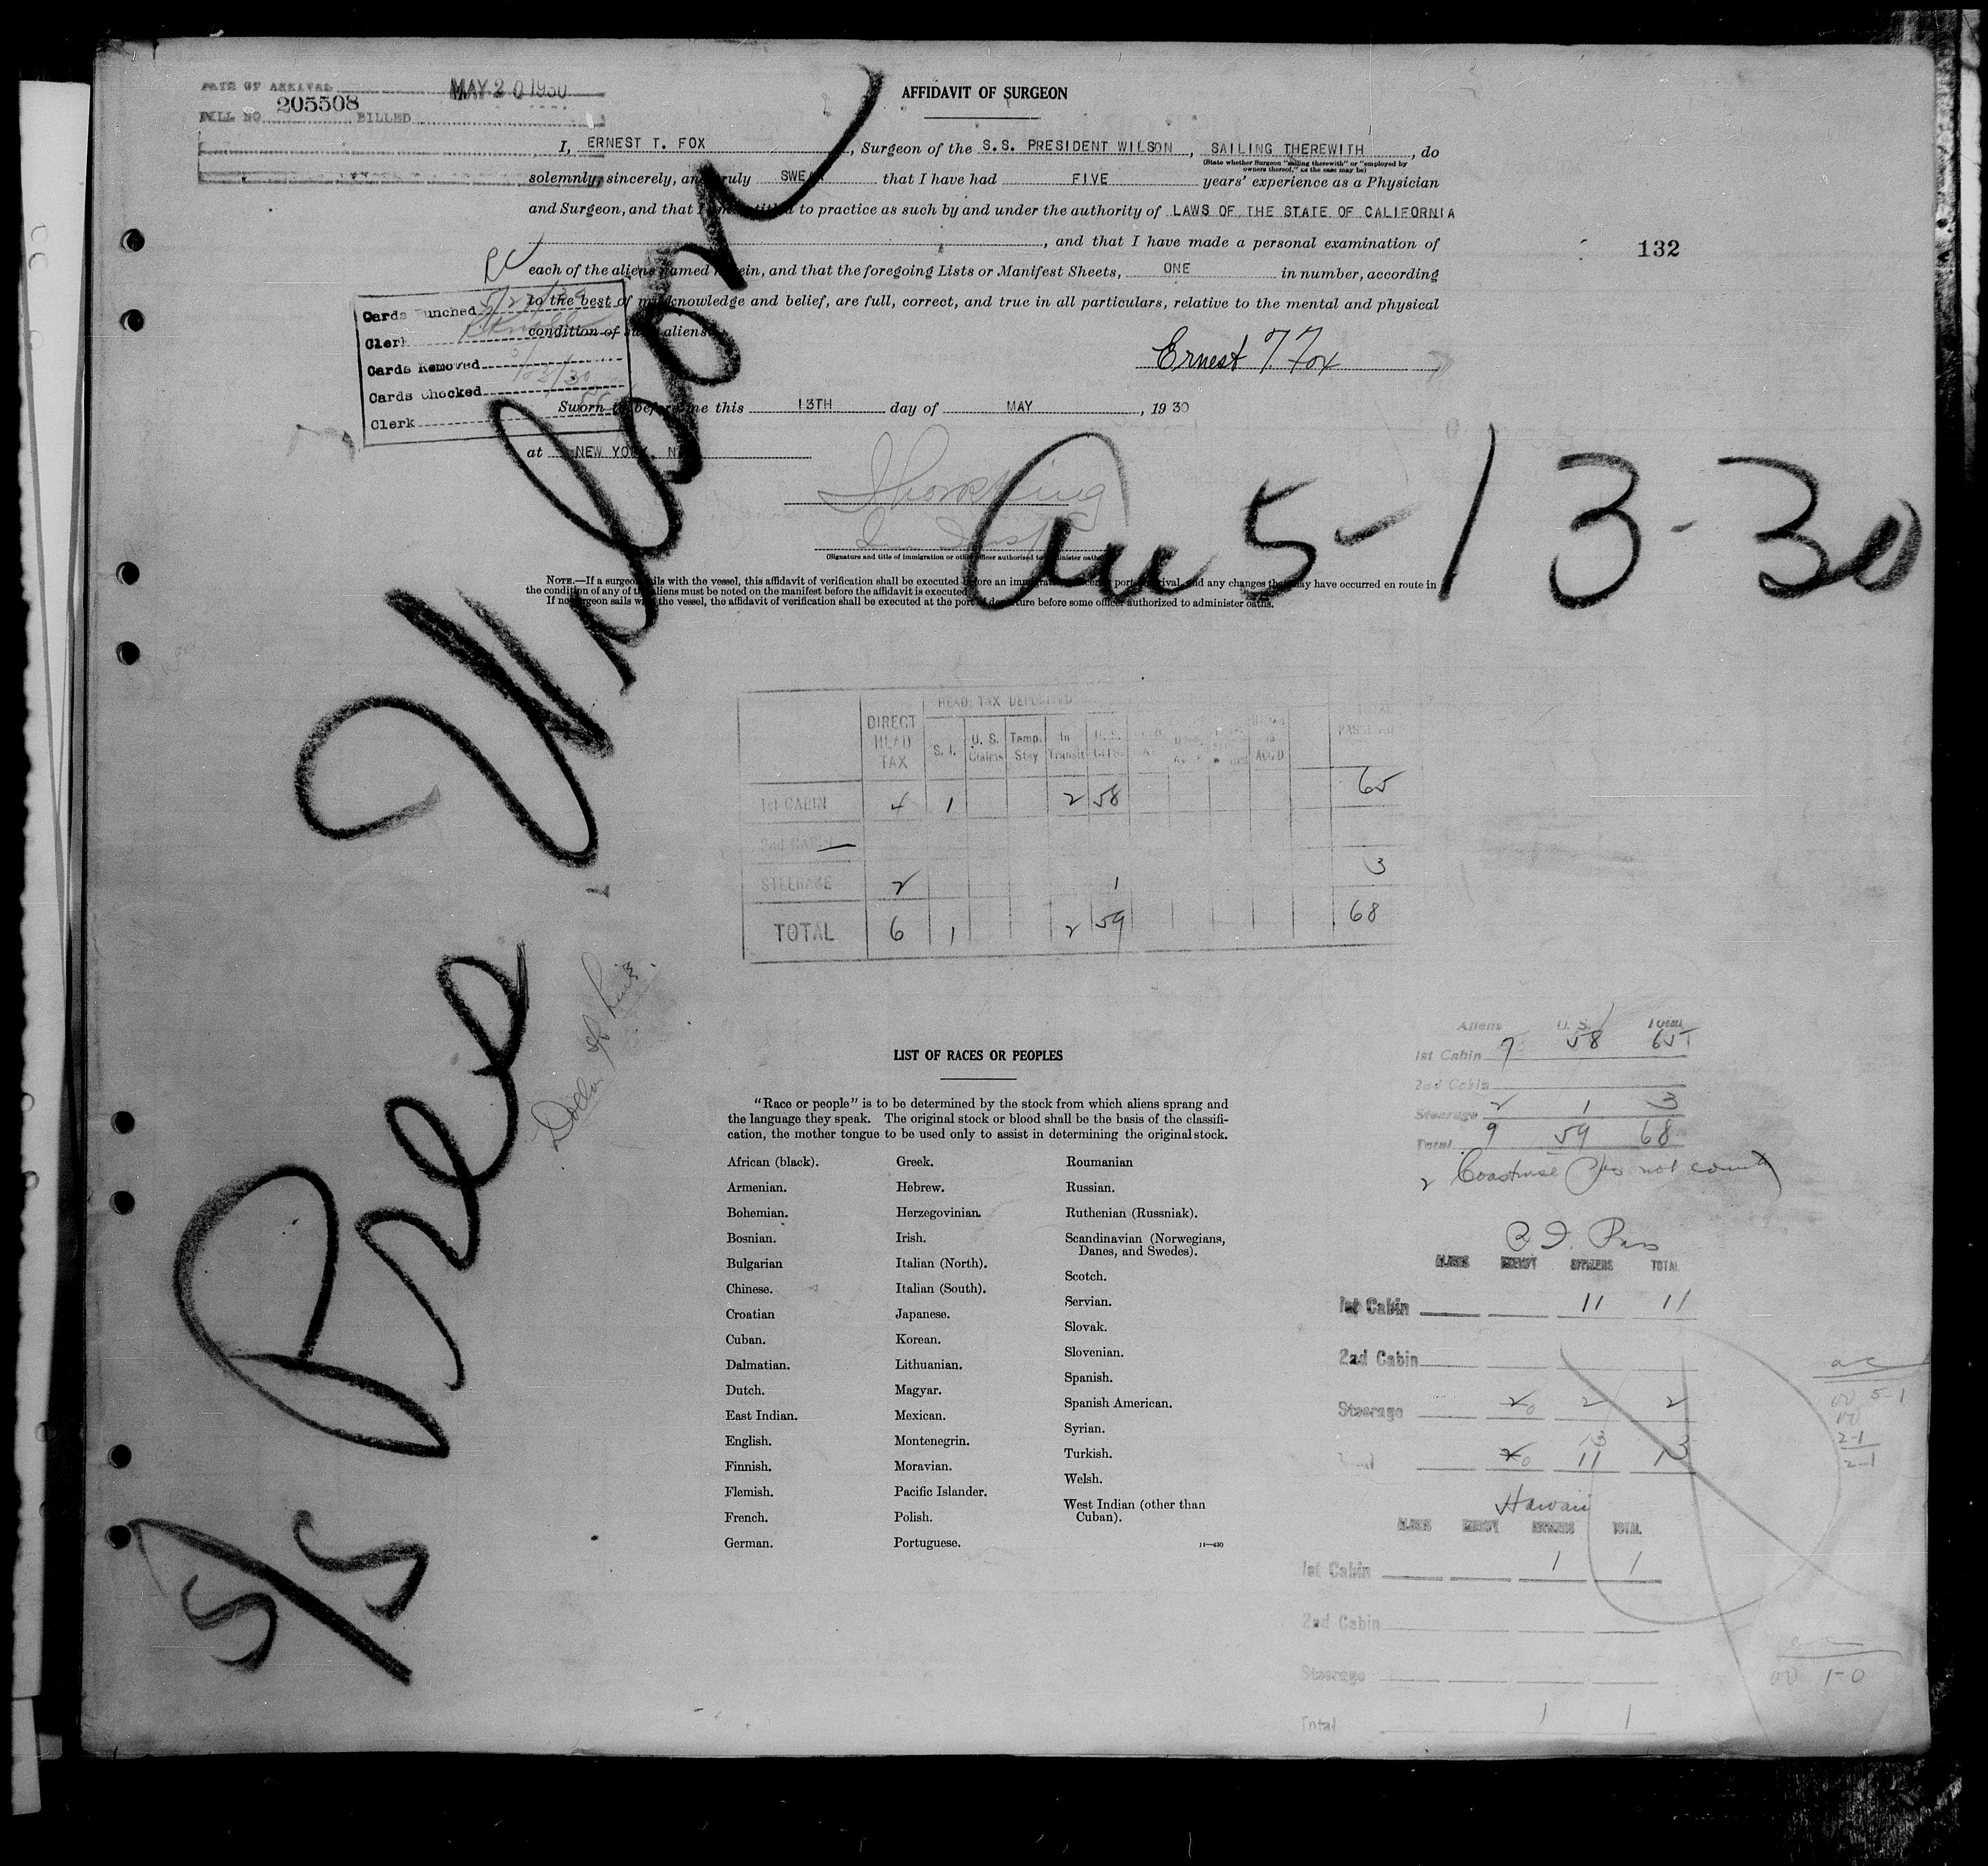 DATE OF ARRIVAL MAY 20 1930
BILL NO. 205508 BILLED
AFFIDAVIT OF SURGEON
I, ERNEST T. FOX, Surgeon of the S.S. PRESIDENT WILSON, SAILING THEREWITH, do
(State whether Surgeon "sailing therewith" or "employed by
owners thereof," as the case may be)
solemnly, sincerely, and truly SWEAR that I have had FIVE years' experience as a Physician
and Surgeon, and that I am entitled to practice as such by and under the authority of LAWS OF THE STATE OF CALIFORNIA
, and that I have made a personal examination of
132
each of the aliens named herein, and that the foregoing Lists or Manifest Sheets, ONE in number, according
to the best of my knowledge and belief, are full, correct, and true in all particulars, relative to the mental and physical
condition of such aliens.
Cards Punched
Clerk
Cards Removed
Cards Checked
Clerk
Ernest T. Fox
Sworn to before me this 13TH day of MAY, 1930
at NEW YORK, N
(Signature and title of immigration or other officer authorized to administer oaths)
S/S Pres Wilson
5-13-30
NOTE.—If a surgeon sails with the vessel, this affidavit of verification shall be executed before an immigration officer at port of arrival, and any changes that may have occurred en route in
the condition of any of the aliens must be noted on the manifest before the affidavit is executed.
If no surgeon sails with the vessel, the affidavit of verification shall be executed at the port of departure before some officer authorized to administer oaths.
HEAD TAX DEPOSITED
DIRECT HEAD TAX S. I. U. S. Claims Temp. Stay In Transit U. S. CITS. TOTAL
1st CABIN 4 1 2 58 65
2nd CABIN —
STEERAGE 2 1 3
TOTAL 6 1 2 59 68
Dollar SS Line.
LIST OF RACES OR PEOPLES
"Race or people" is to be determined by the stock from which aliens sprang and
the language they speak. The original stock or blood shall be the basis of the classifi-
cation, the mother tongue to be used only to assist in determining the original stock.
African (black).
Armenian.
Bohemian.
Bosnian.
Bulgarian
Chinese.
Croatian
Cuban.
Dalmatian.
Dutch.
East Indian.
English.
Finnish.
Flemish.
French.
German.
Greek.
Hebrew.
Herzegovinian.
Irish.
Italian (North).
Italian (South).
Japanese.
Korean.
Lithuanian.
Magyar.
Mexican.
Montenegrin.
Moravian.
Pacific Islander.
Polish.
Portuguese.
Roumanian
Russian.
Ruthenian (Russniak).
Scandinavian (Norwegians,
Danes, and Swedes).
Scotch.
Servian.
Slovak.
Slovenian.
Spanish.
Spanish American.
Syrian.
Turkish.
Welsh.
West Indian (other than
Cuban).
Aliens U. S. Total
1st Cabin 7 58 65
2nd Cabin
Steerage 2 1 3
Total 9 59 68
2 Coastwise not count
P I. Pass
ALIENS EXEMPT CITIZENS TOTAL
1st Cabin 11 11
2nd Cabin
Steerage 2 2
13
11 13
Hawaii
ALIENS EXEMPT CITIZENS TOTAL
1st Cabin 1 1
2nd Cabin
Steerage
Total 1 1
5-1
2-1
2-1
1-0